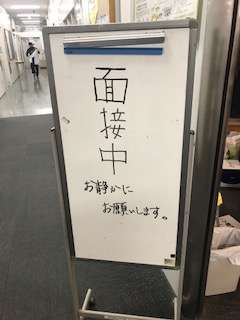 面接中
お静かに
お願いします。